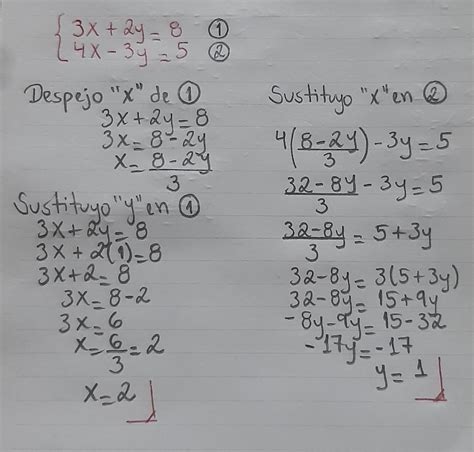 3x + 2y = 8 ①
4x - 3y = 5 ②
Despejo "x" de ①
3x + 2y = 8
3x = 8 - 2y
x = 8 - 2y
3
Sustituyo "x" en ②
4(8 - 2y) - 3y = 5
3
32 - 8y - 3y = 5
3
32 - 8y = 5 + 3y
3
32 - 8y = 3(5 + 3y)
32 - 8y = 15 + 9y
-8y - 9y = 15 - 32
-17y = -17
y = 1
Sustituyo "y" en ①
3x + 2y = 8
3x + 2(1) = 8
3x + 2 = 8
3x = 8 - 2
3x = 6
x = 6 = 2
3
x = 2